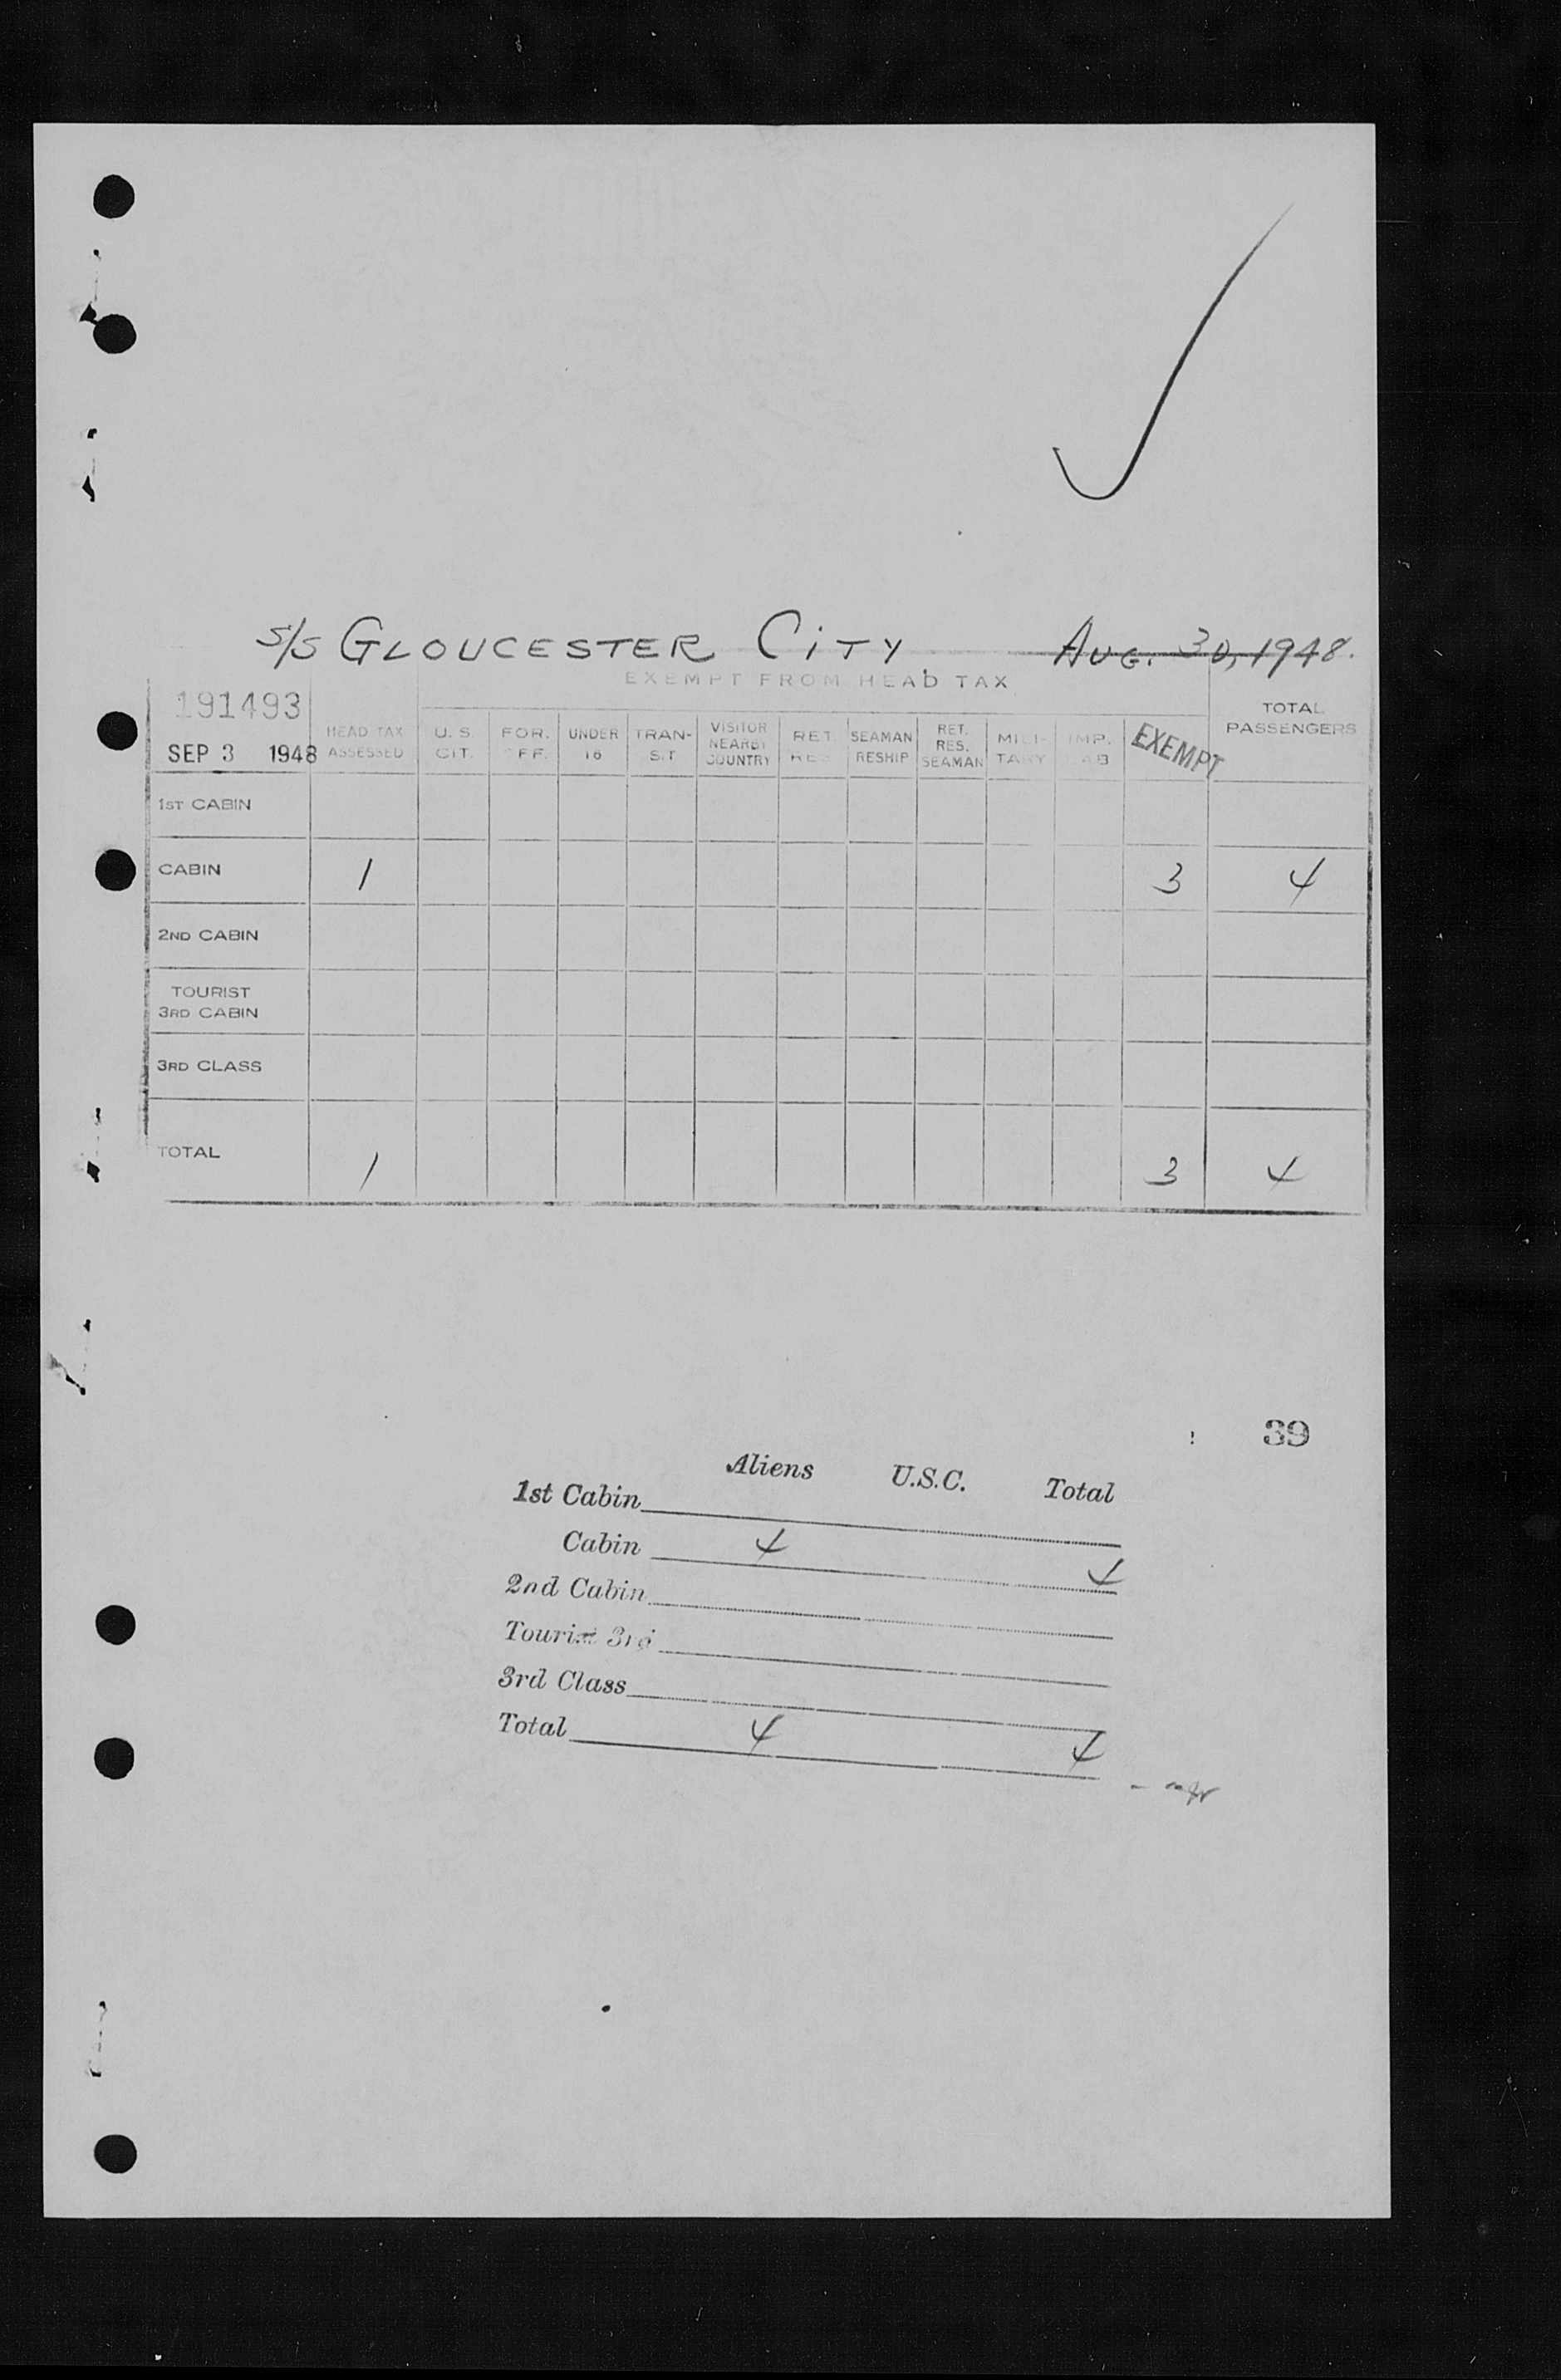 S/S GLOUCESTER CITY AUG. 30, 1948.
EXEMPT FROM HEAD TAX
191493
SEP 3 1948
HEAD TAX ASSESSED
U.S. CIT.
FOR. OFF.
UNDER 16
TRAN-SIT
VISITOR NEARBY COUNTRY
RET. RES.
SEAMAN RESHIP
RET. RES. SEAMAN
MILI-TARY
IMP.
EXEMPT
TOTAL PASSENGERS
1ST CABIN
CABIN 1 3 4
2ND CABIN
TOURIST
3RD CABIN
3RD CLASS
TOTAL 1 3 4
39
Aliens U.S.C. Total
1st Cabin
Cabin 4 4
2nd Cabin
Tourist 3rd
3rd Class
Total 4 4